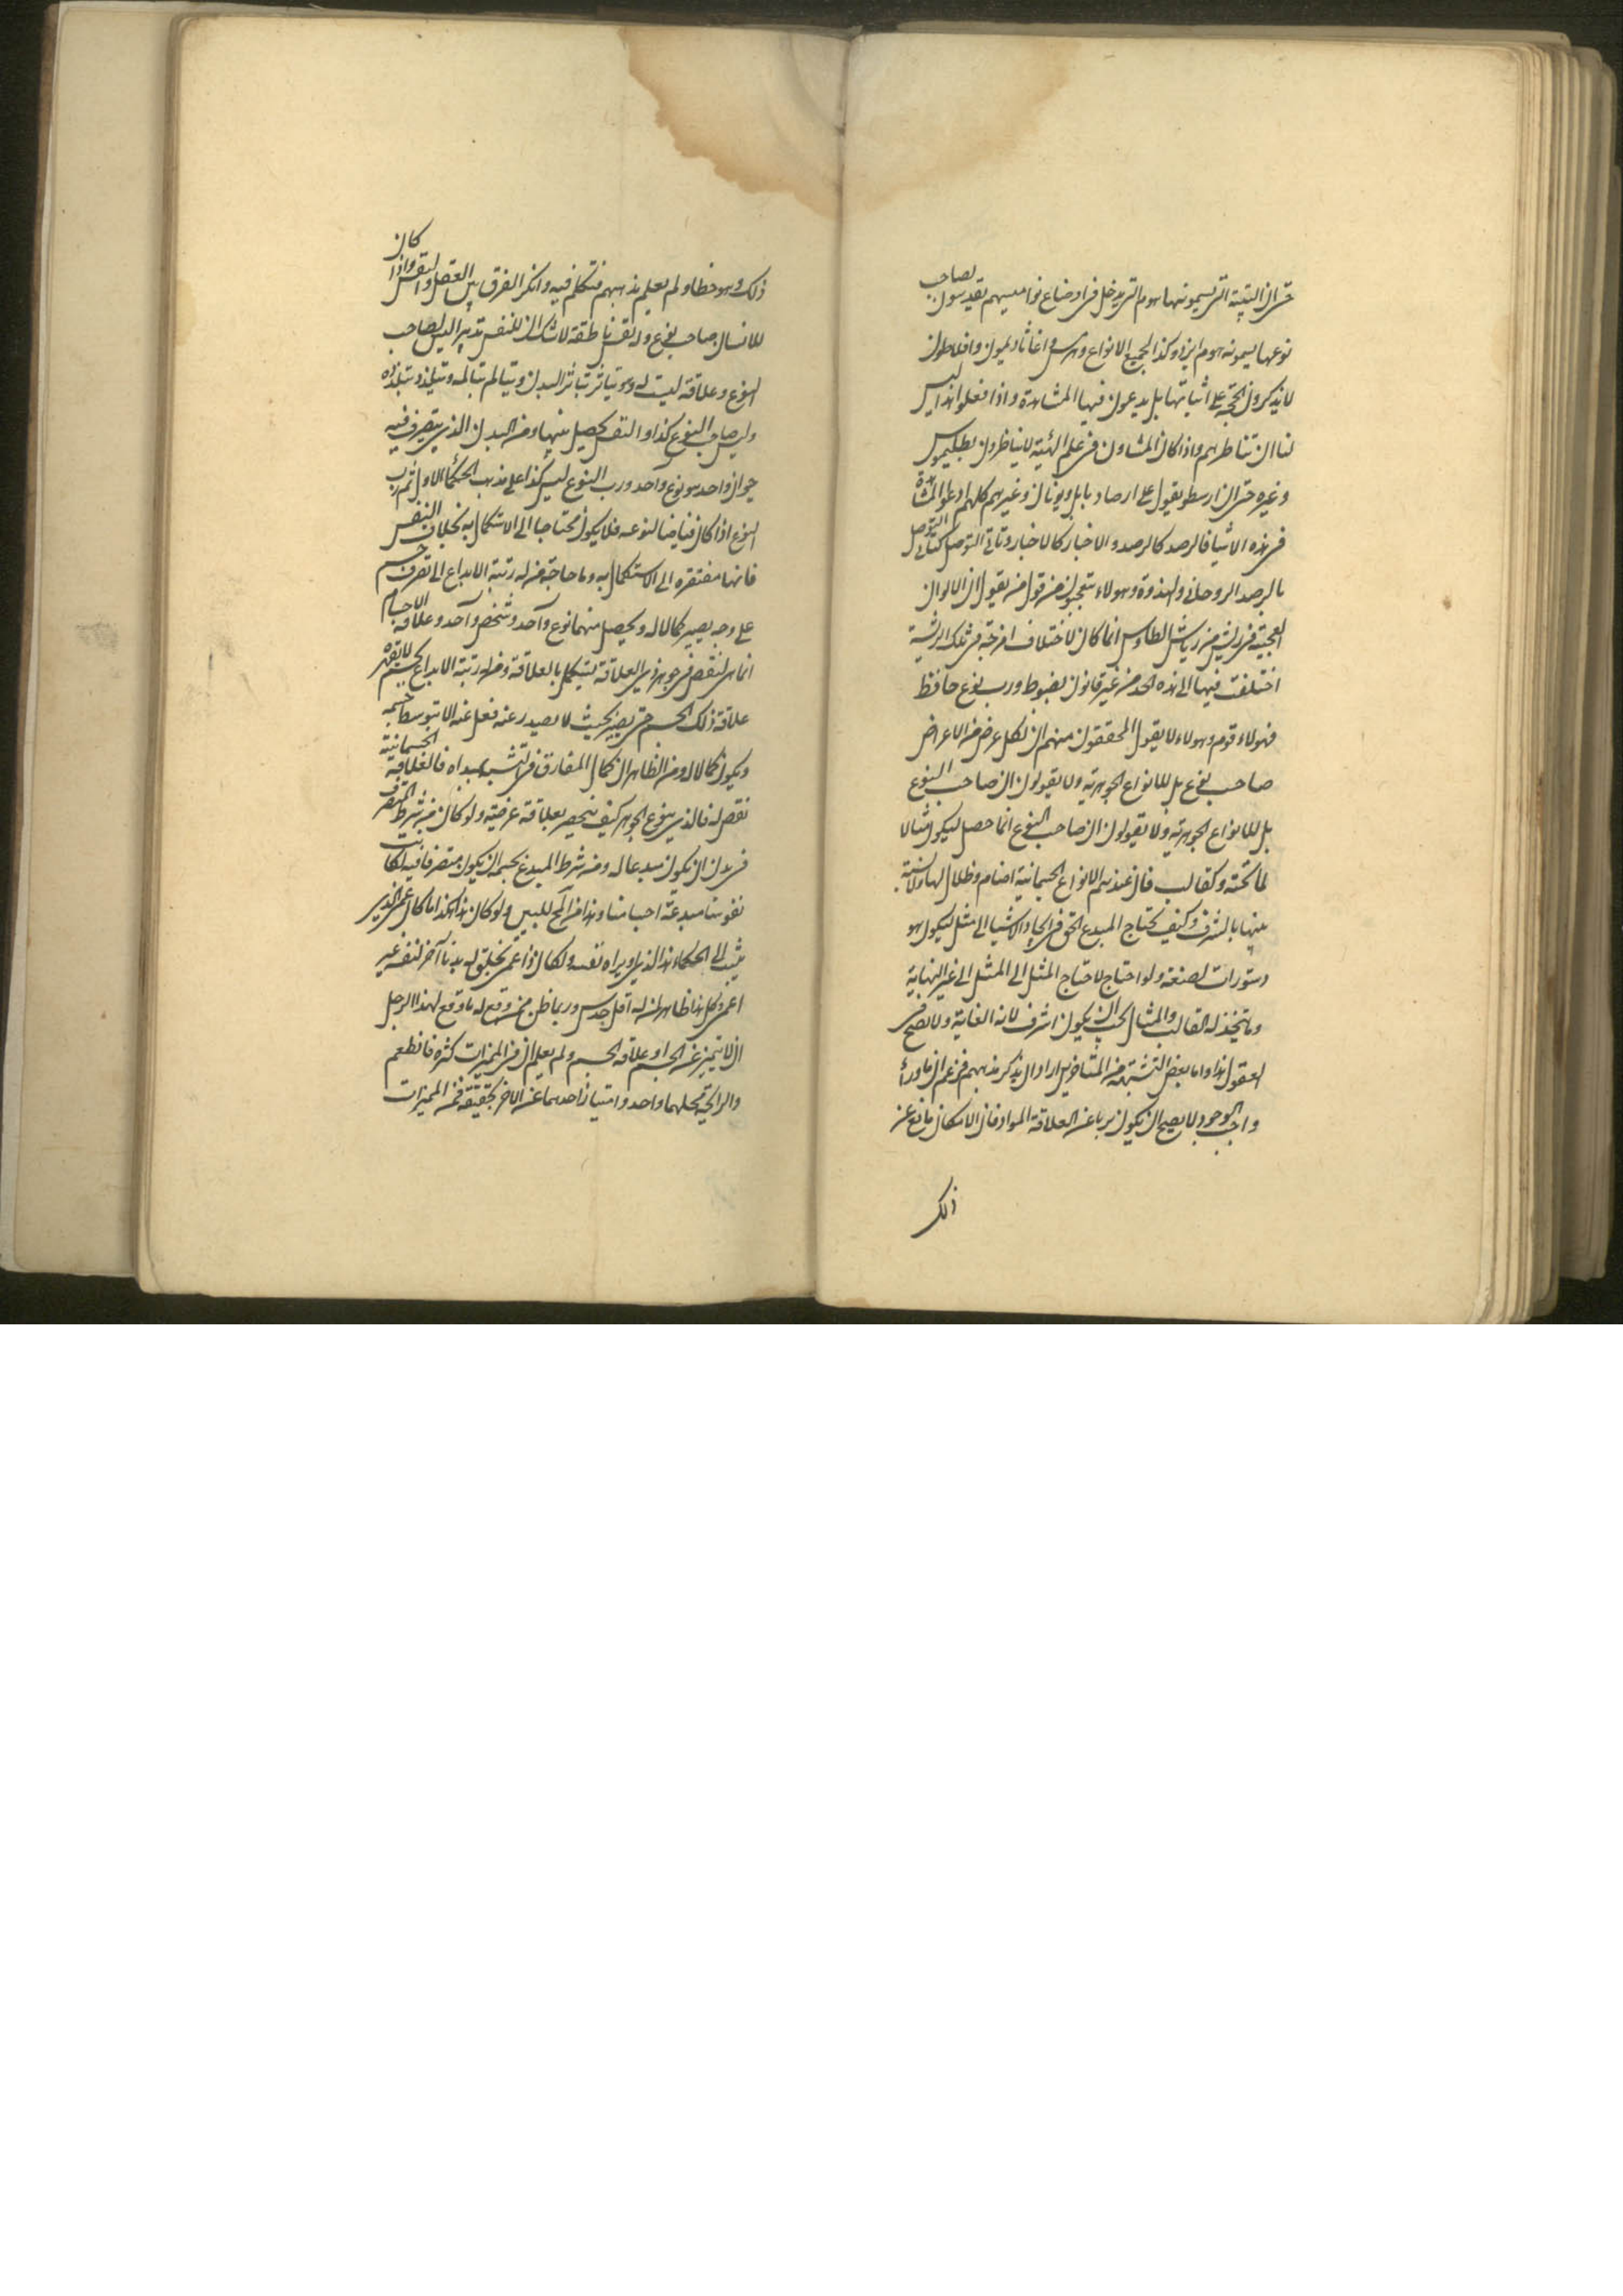 حتى ان النبتة التى يسمونها هوم التى يدخل فى اوضاع نواميسهم يقدسون لصاحب
نوعها يسمونه هوم ايزد وكذا لجميع الانواع وهرمس واغاثاذيمون وافلاطون
لا يذكرون الحجة على اثباتها بل يدعون فيها المشاهدة واذا فعلوا هذا ليس
لنا ان نناظرهم واذا كان المشاون فى علم الهيئة لا يناظرون بطليموس
وغيره حتى ان ارسطو يقول على ارصاد بابل ويونان وغيرهم كلهم ادعوا المشاهدة
فى هذه الاشيا فالرصد كالرصد والاخبار كالاخبار وتاتى التوصل كتاتى التوصل
بالرصد الروحانى ولهذوة وهولاء يتعجبون من قول من يقول ان الالوان
العجيبة فى ريش من رياش الطاوس انما كان لاختلاف امزجة فى تلك الريشة
اختلفت فيها الى هذه الحد من غير قانون مضبوط ورب نوع حافظ
فهولاء قوم وهولاء لا يقول المحققون منهم ان لكل عرض من الاعراض
صاحب نوع بل للانواع الجوهرية ولا يقولون ان صاحب النوع
بل للانواع الجوهرية ولا يقولون ان صاحب النوع انما حصل ليكون مثالا
لما تحته وكقالب فان عندهم الانواع الجسمانية اصنام وظلال لها ولا نسبة
بينها بالشرف وكيف يحتاج المبدع الحق فى ايجاد الاشيا الى مثل ليكون هو
دستورات لصنعه ولو احتاج لاحتاج المثل الى المثل الى غير النهاية
وما يتخذ له القالب والمثال يجب ان يكون اشرف لانه الغاية ولا يصح فى
العقول هذا واما بعض المتشبهة من المتاخرين اراد ان يذكر مذهبهم فزعم ان ماوراء
واجب الوجود لا يصح ان يكون بريا عن العلاقة المواد فان الامكان مانع عن
ذلك
ذلك وهو خطا ولم يعلم مذهبهم فتكلم فيه وانكر الفرق بين العقل والنفس واذا كان
للانسان صاحب نوع وله نفس ناطقة لا شك ان للنفس تدبيرا ليس لصاحب
النوع وعلاقة ليست له وهو يتاثر بتاثر البدن ويتالم بتالمه ويتلذذ بتلذذه
وليس صاحب النوع كذا والنفس يحصل منها ومن البدن الذى يتصرف فيه
حيوان واحد هو نوع واحد ورب النوع ليس كذا على مذهب الحكما الاول ثم رب
النوع اذا كان فياضا لنوعه فلا يكون محتاجا الى الاستكمال به بخلاف النفس
فانها مفتقرة الى الاستكمال به وما حاجة من له رتبة الابداع الى تصرف جسم
على وجه يصير كمالا له ويحصل منهما نوع واحد وشخص واحد وعلاقة الاجسام
انما هى لنقص فى جوهر ذى العلاقة يستكمل بالعلاقة ومن له رتبة الابداع لجسم لا يقهره
علاقة ذلك الجسم حتى يصير بحيث لا يصدر عنه فعل عنه الا بتوسط جسمه
ويكون كمالا له ومن الظاهر ان كمال المفارق فى التشبه بمبداه فالعلاقة الجسمانية
نقص له فالذى بنوع الجوهر كيف ينحصر بعلاقة عرضية ولو كان من شرط المتصرف
فى بدن ان يكون مبدعا له ومن شرط المبدع بجسم ان يكون متصرفا فيه لكانت
نفوسنا مبدعة اجسامنا وهذا من المح للبين ولو كان هذا هكذا ما كان عمى الذى
ينسب الى الحكماء هذا الذى او يراه نفسه ولكان ذا عمى يخلق له بدنا آخر لنفسه غير
اعمى وكل هذا ظاهر لمن له اقل حدس وربما ظن من وقع له ما وقع لهذا الرجل
ان لا تميز عن الجسم او علاقة الجسم ولم يعلم ان من المميزات كثرة فالطعم
والرائحة محلهما واحد وامتياز احدهما عن الاخر بحقيقة فمن المميزات